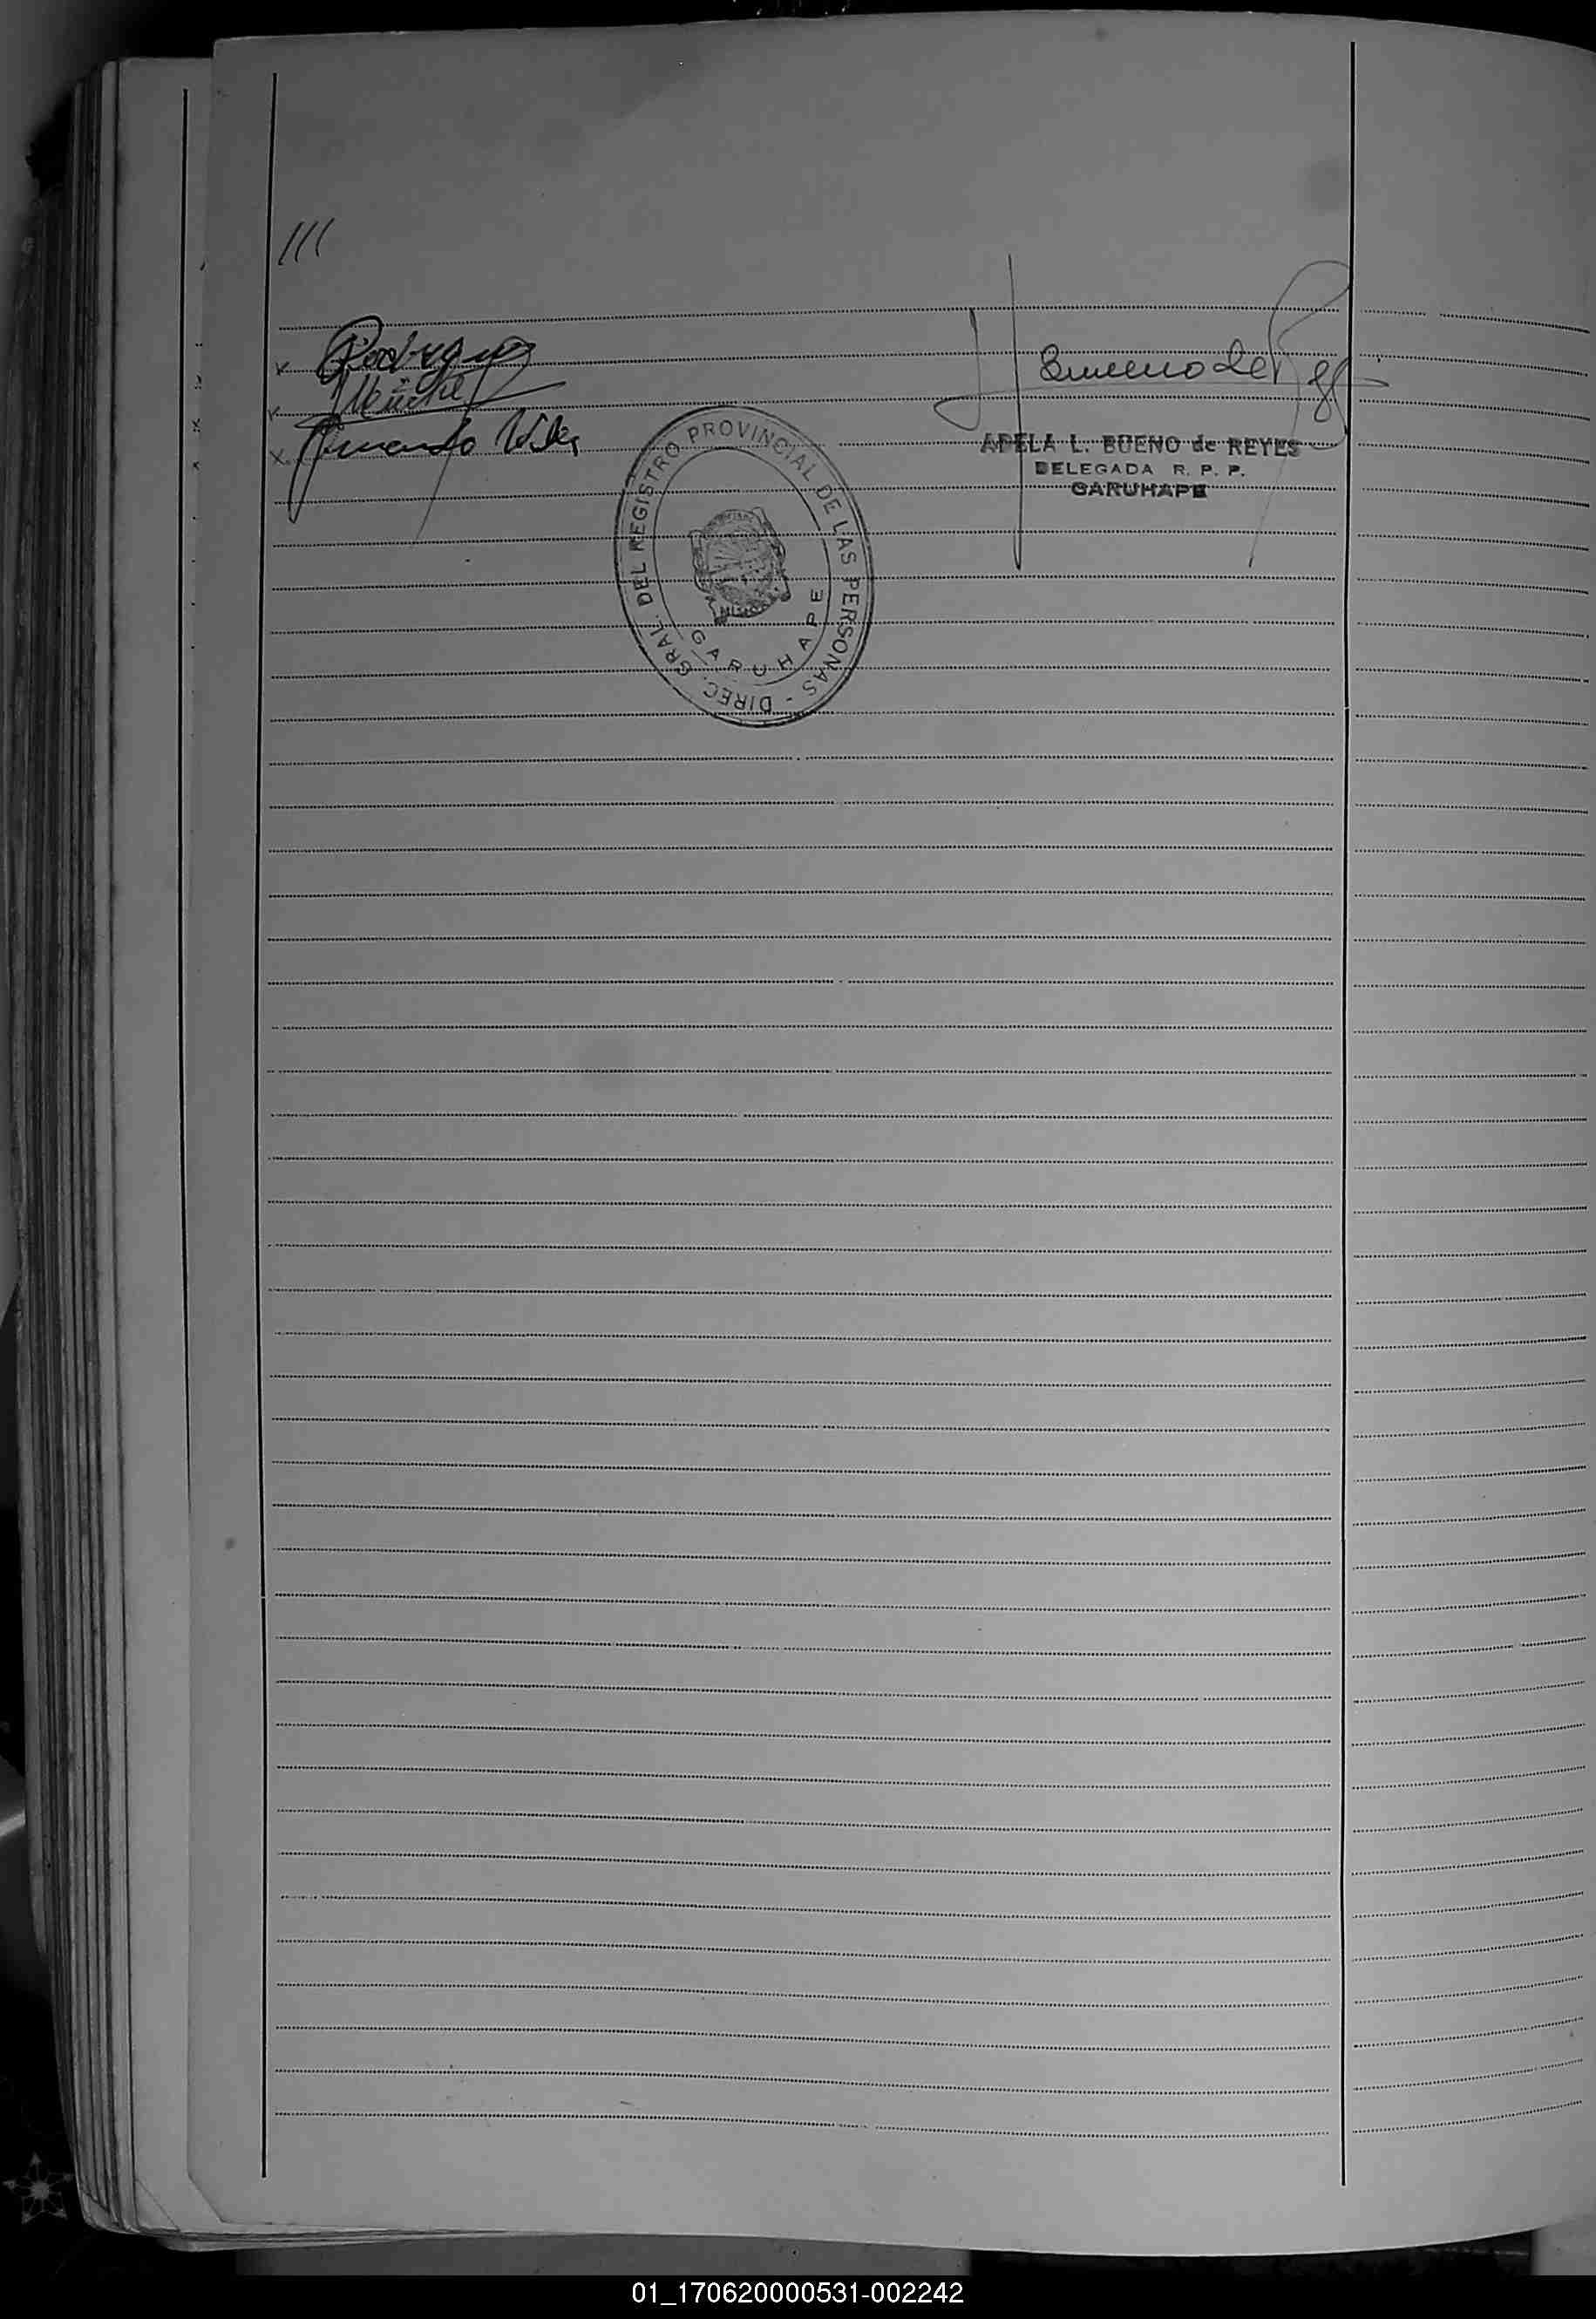 ///
x Rodriguez
x
x Armando
Bueno de Reyes
ADELA L. BUENO de REYES
DELEGADA R. P. P.
GARUHAPE
DIREC. GRAL. DEL REGISTRO PROVINCIAL DE LAS PERSONAS -
GARUHAPE
01_170620000531-002242